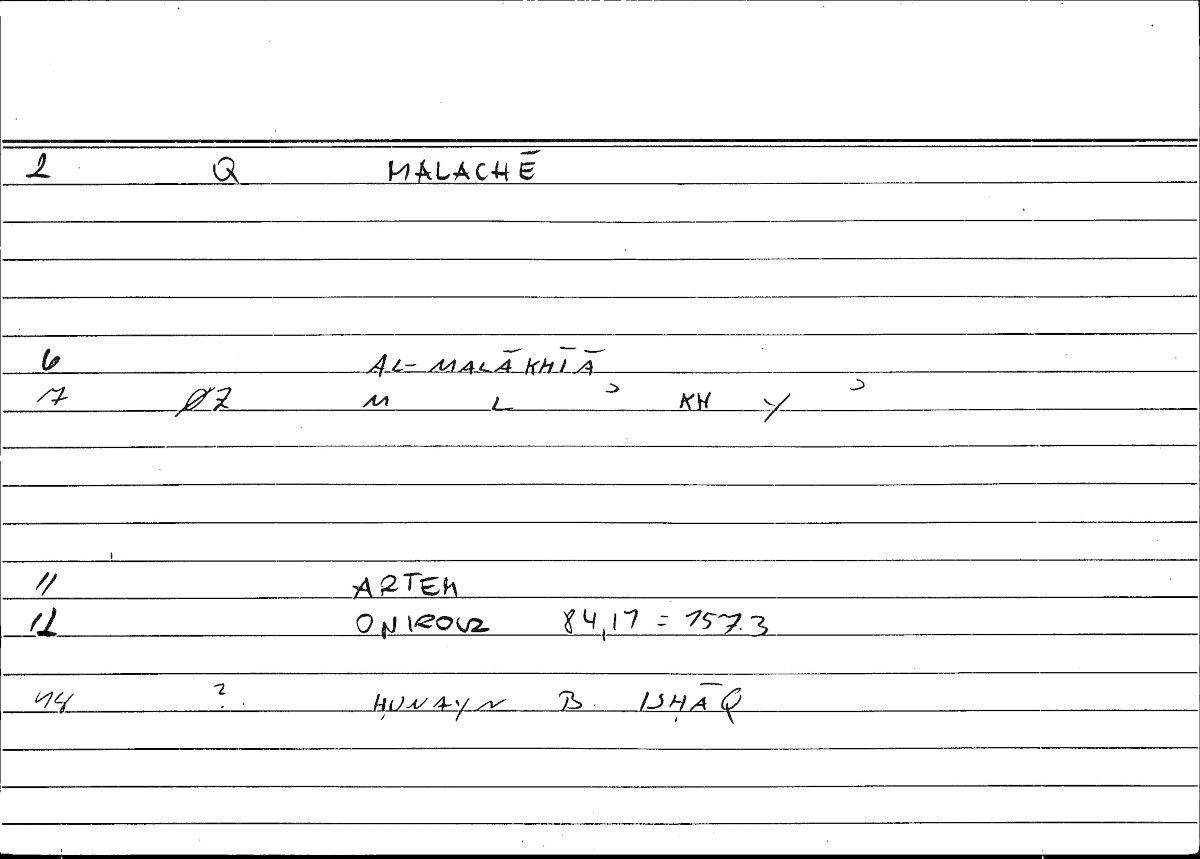 2 Q MALACHĒ
6 AL-MALĀKHĪĀ
7 ØZ M L ʾ KH Y ʾ
11 ARTEM
12 ONIROCR 84,17 = 157.3
14 ? ḤUNAYN B. ISḤĀQ